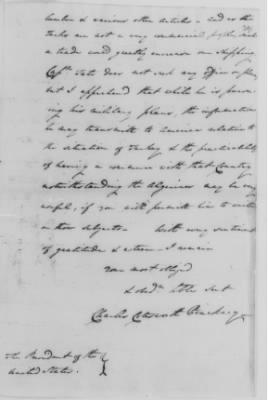 lumber & various other articles - and as the
Turks are not a very commercial people, such
a trade would greatly increase our shipping.
Captn. Tate does not seek any office or place,
but I apprehend that while he is pursu-
ing his military plans, the information
he may transmit to America relative to
the situation of Turkey & the practicability
of having a commerce with that Country
notwithstanding the Algerines may be very
useful, if you will permit him to write
on those subjects. With every sentiment
of gratitude & esteem I remain
Your most obliged
& obedt. humble Servt.
Charles Cotesworth Pinckney
The President of the
United States.